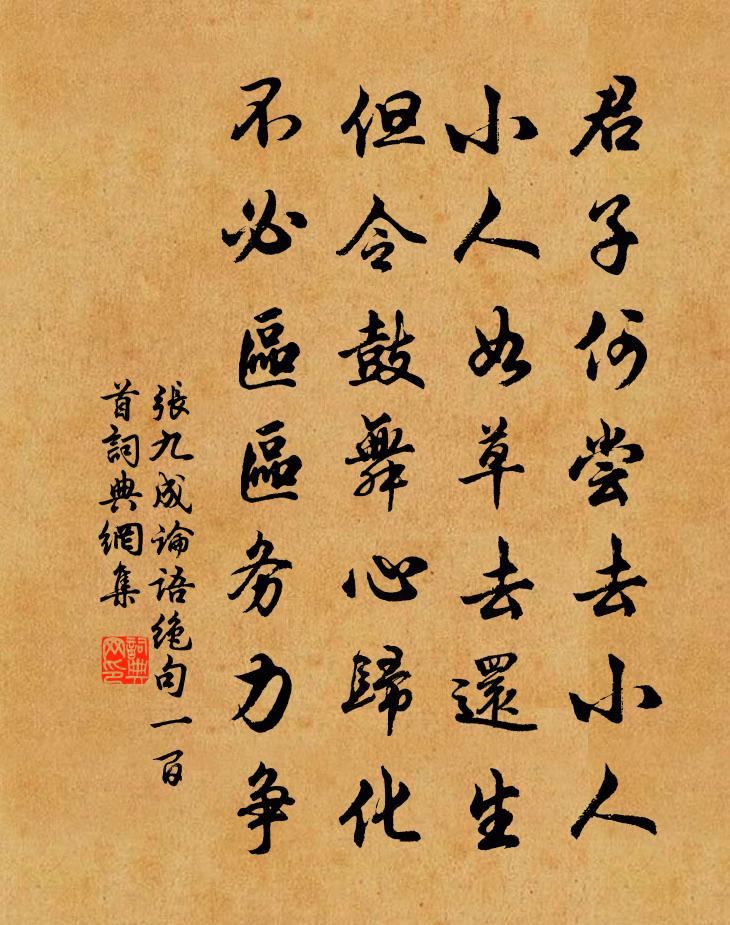 君子何尝去小人
小人如草去還生
但令鼓舞心歸化
不必區區务力争
張九成論語绝句一百
首詞典網集
詞典网印